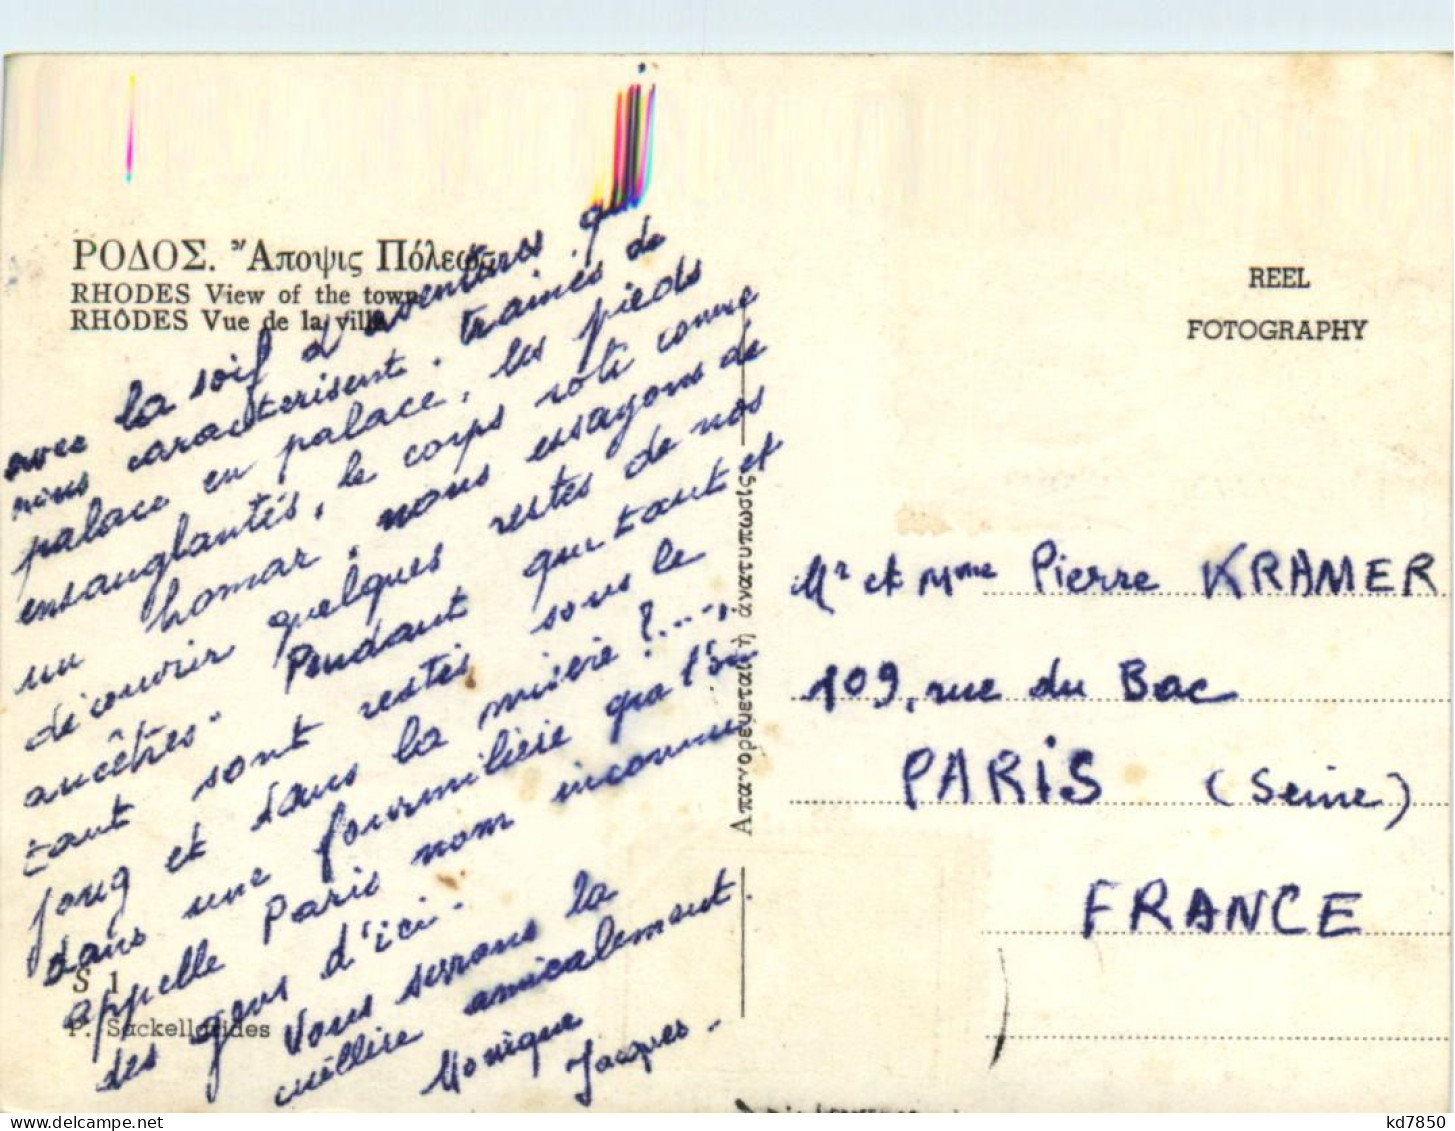 ΡΟΔΟΣ. Ἄποψις Πόλεως
RHODES View of the town
RHÔDES Vue de la ville
avec la soif d'aventures qui
nous caracterisent. trainés de
palace en palace, les pieds
ensanglantés, le corps roti comme
un homar, nous essayons de
découvrir quelques restes de nos
ancêtres. Pendant que tant et
tant sont restés sous le
joug et dans la misère ?....,
dans une fourmilière que l'on
appelle Paris nom inconnu
des gens d'ici.
Vous serrons la
cuillère amicalement.
Monique
Jacques.
S 1
P. Sackellarides
Ἀπαγορεύεται ἡ ἀνατύπωσις
REEL
FOTOGRAPHY
Mr et Mme Pierre KRAMER
109, rue du Bac
PARIS (Seine)
FRANCE
kd7850